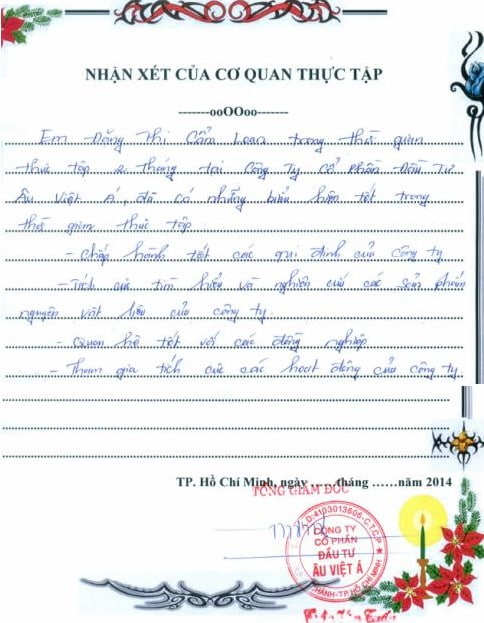 NHẬN XÉT CỦA CƠ QUAN THỰC TẬP
-------ooOOoo-------
Em Đặng Thị Cẩm Loan trong thời gian
thực tập 2 tháng tại Công Ty Cổ Phần Đầu Tư
Âu Việt Á, đã có những biểu hiện tốt trong
thời gian thực tập
- Chấp hành tốt các qui định của công ty
- Tích cực tìm hiểu và nghiên cứu các sản phẩm
nguyên vật liệu của công ty.
- Quan hệ tốt với các đồng nghiệp
- Tham gia tích cực các hoạt động của công ty.
TP. Hồ Chí Minh, ngày ......tháng ......năm 2014
TỔNG GIÁM ĐỐC
D:4103013606-C.T.C.P
CÔNG TY
CỔ PHẦN
ĐẦU TƯ
ÂU VIỆT Á
THÀNH-TP.HỒ CHÍ MINH